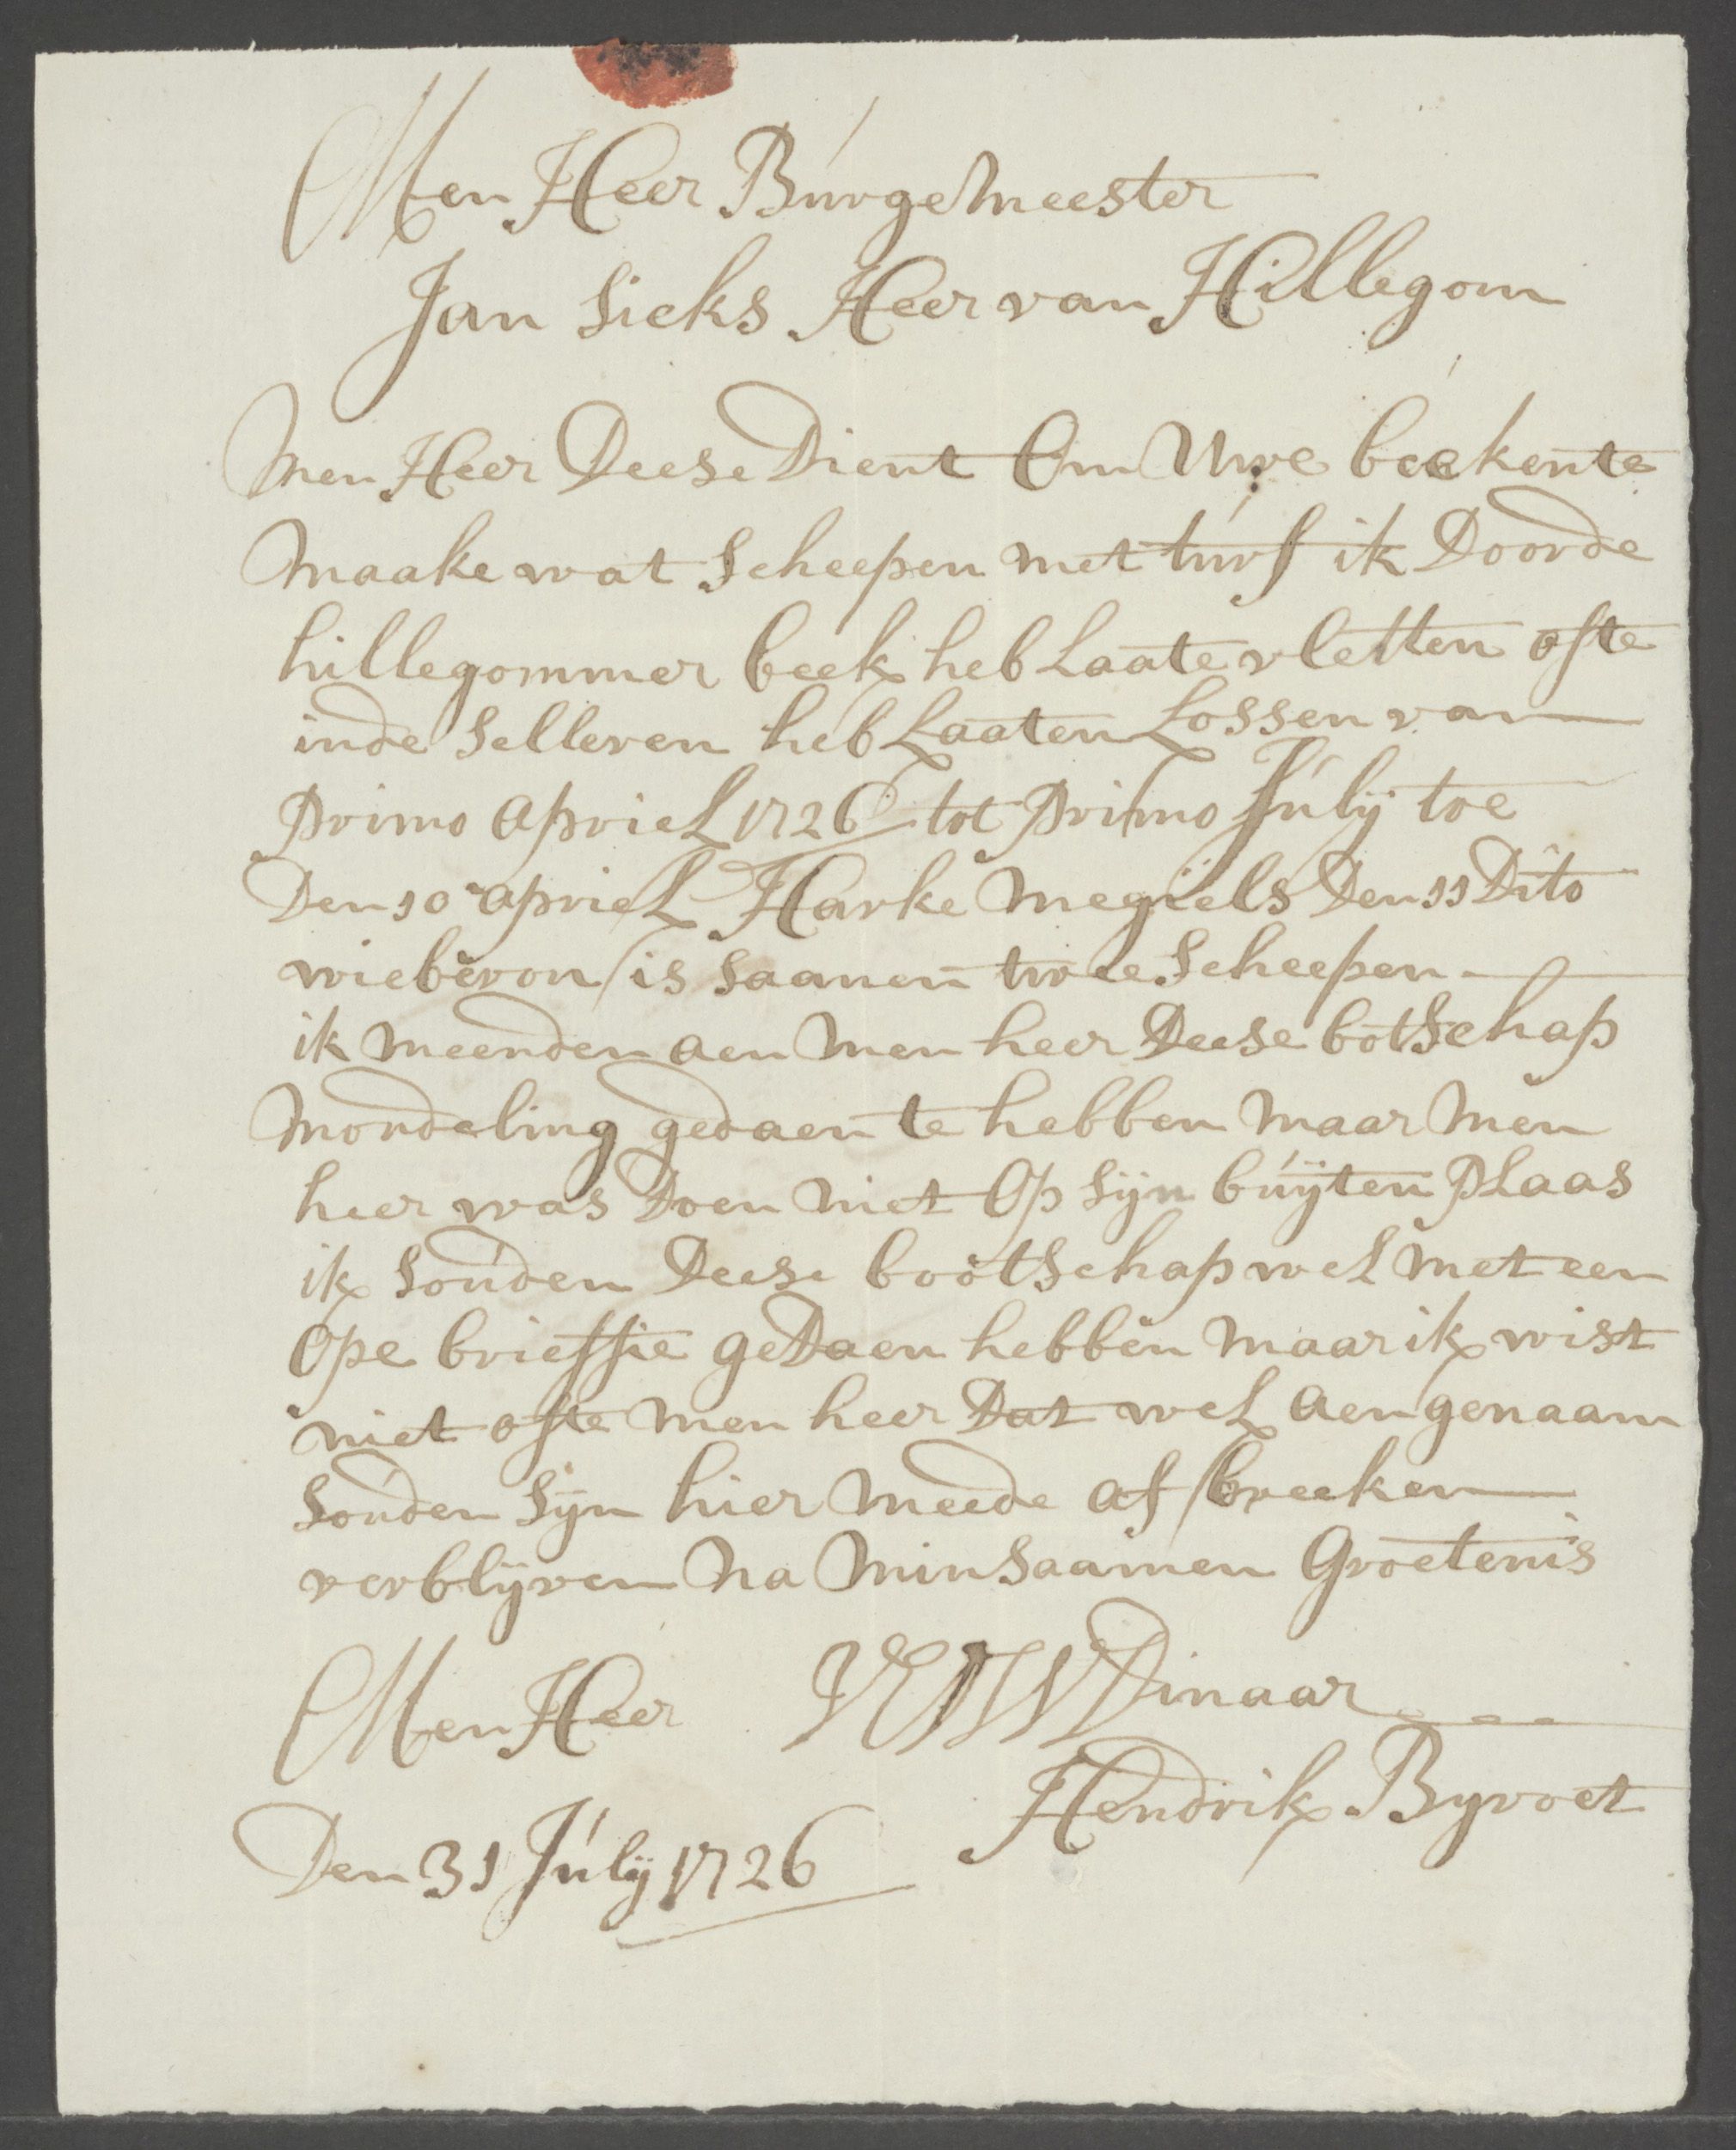 Men Heer Burgemeester
Jan Sicks Heer van Hillegom
Men Heer Deese Dient Om Uwe beekente
Maake wat Scheepen met turf ik Doorde
hillegommer beek heb Laate vletten ofte
inde Selleven heb Laaten Lossen van
primo apriel 1726 tot primo July toe
Den 10 apriel Harke Megiels Den 11 Dito
wieberon is Saamen twee Scheepen
ik meenden aen Men heer Deese botschap
Mondeling gedaen te hebben Maar Men
heer was Doen niet Op Sijn buijten plaas
ik Souden Deese bootschap wel Met een
Ope brieffie geDaen hebben Maar ik wist
niet ofte Men heer Dat wel aengenaam
Souden Sijn hier Meede af breeken
verblijven Na Minsaamen Groetenis
Men Heer UEW Dinaar
Hendrik Byvoet
Den 31 July 1726